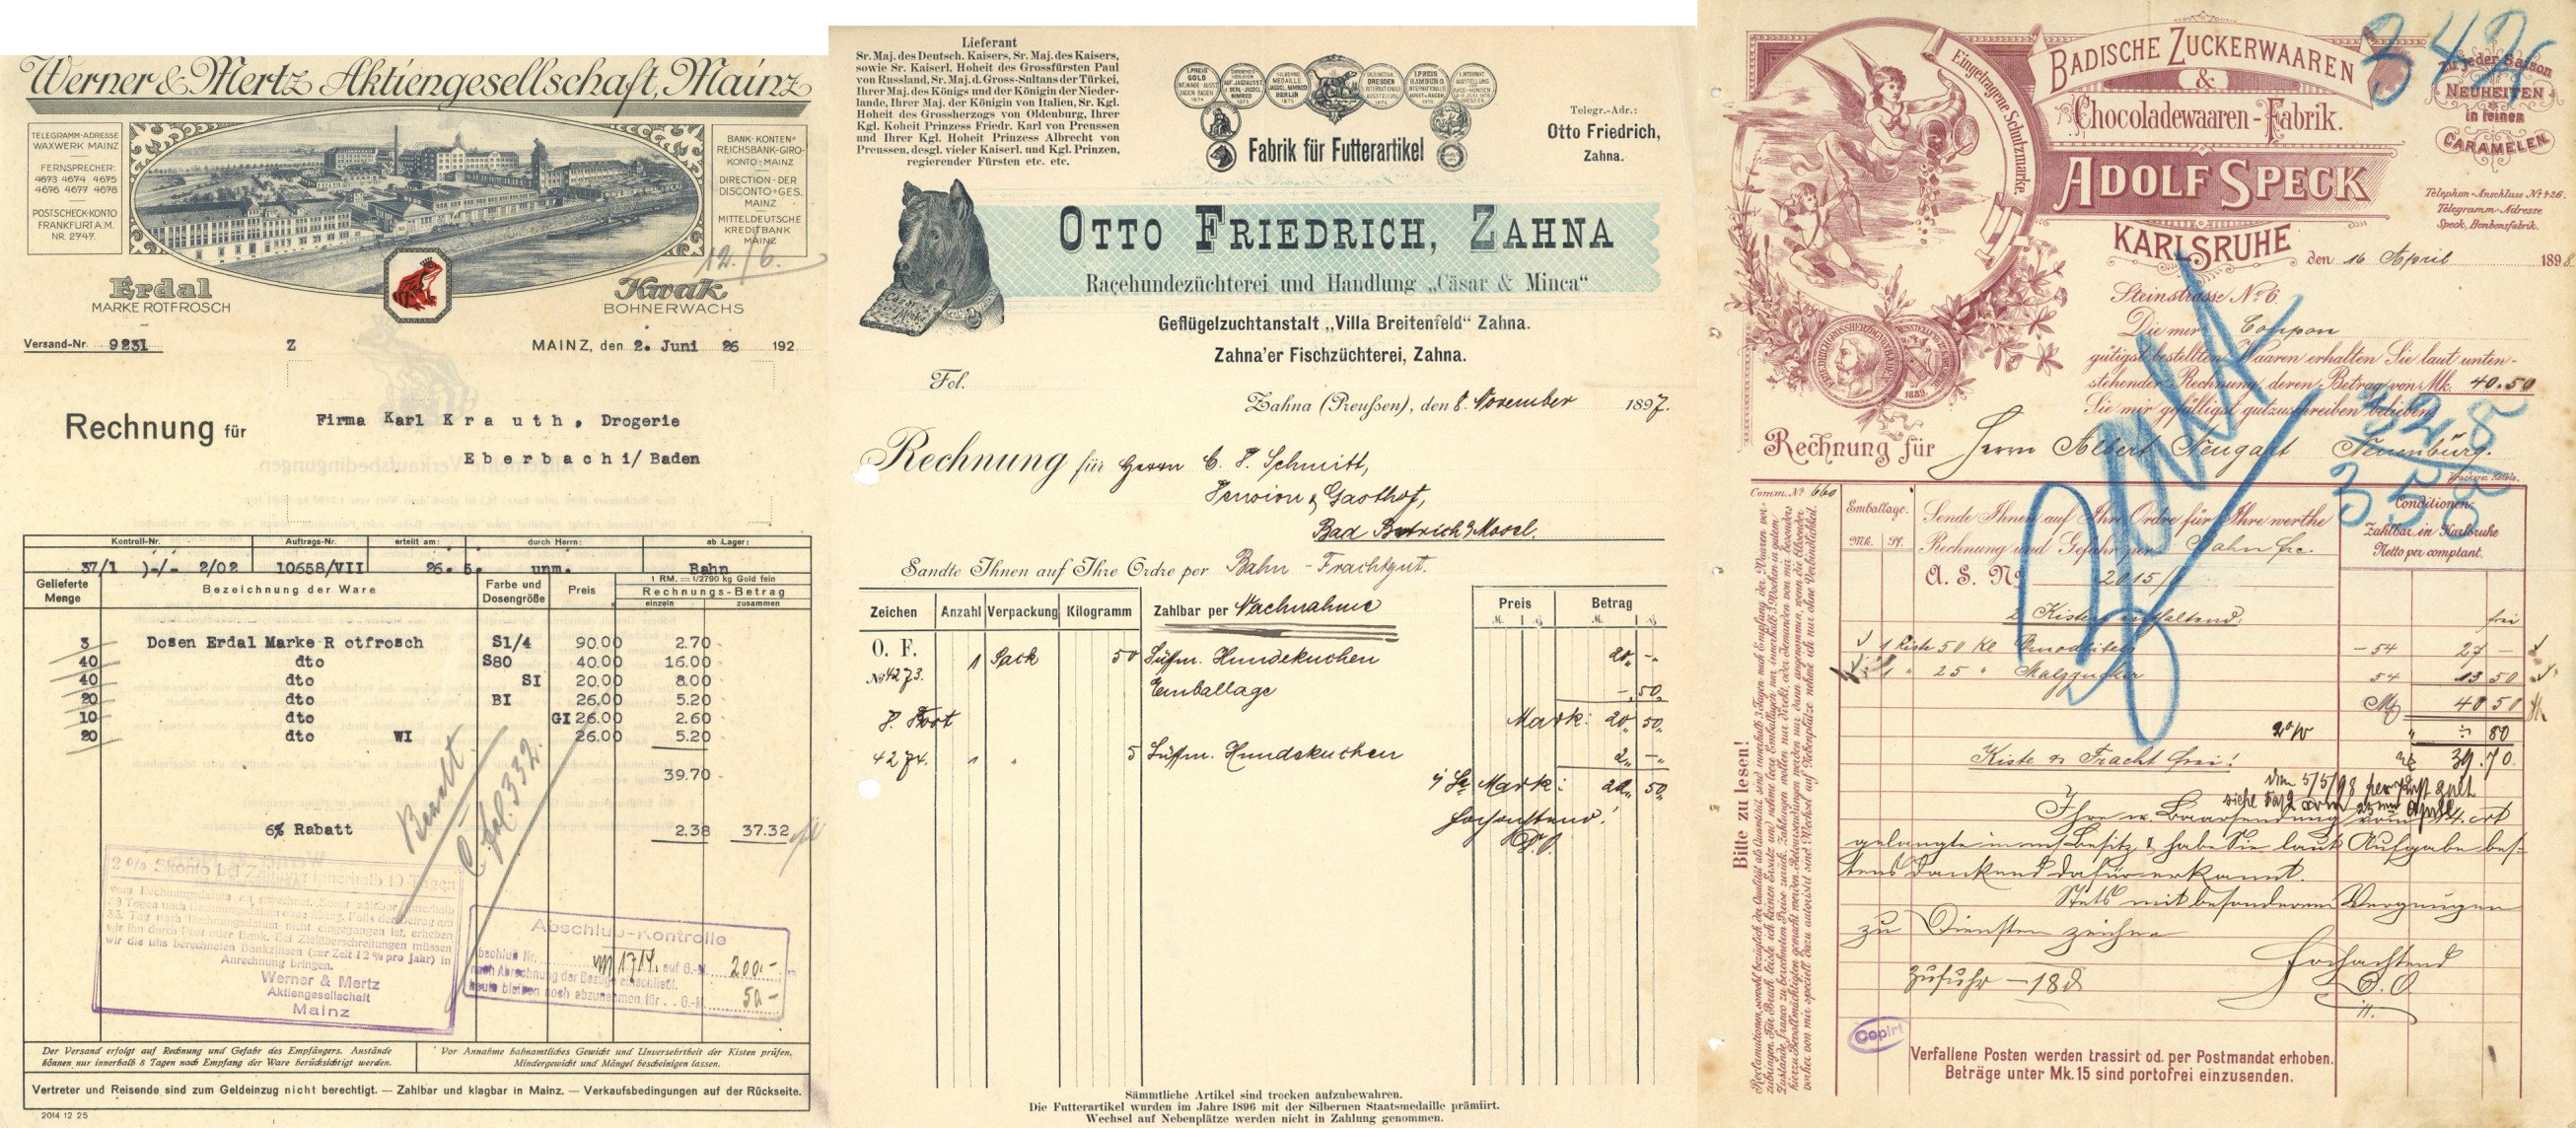 Werner & Mertz Aktiengesellschaft, Mainz
TELEGRAMM-ADRESSE
WAXWERK MAINZ
FERNSPRECHER:
4673 4674 4675
4676 4677 4678
POSTSCHECK-KONTO
FRANKFURT A.M.
NR. 2747.
BANK-KONTEN:
REICHSBANK-GIRO-
KONTO-MAINZ
DIRECTION-DER
DISCONTO-GES.
MAINZ
MITTELDEUTSCHE
KREDITBANK
MAINZ
12./6.
Erdal
MARKE ROTFROSCH
Kwak
BOHNERWACHS
Versand-Nr. 9231 Z MAINZ, den 2. Juni 26 192
Rechnung für Firma Karl K r a u t h , Drogerie
E b e r b a c h i/ Baden
Kontroll-Nr. Auftrags-Nr. erteilt am: durch Herrn: ab Lager:
37/1 )-/- 2/02 10658/VII 26. 5. unm. Bahn
Gelieferte Menge Bezeichnung der Ware Farbe und Dosengröße Preis 1 RM. = 1/2790 kg Gold fein
Rechnungs-Betrag
einzeln zusammen
3 Dosen Erdal Marke R otfrosch S1/4 90.00 2.70
40 dto S80 40.00 16.00
40 dto SI 20.00 8.00
20 dto BI 26.00 5.20
10 dto GI 26.00 2.60
20 dto WI 26.00 5.20
39.70
6% Rabatt 2.38 37.32
C. fol. 332.
2 % Skonto bei Zahlung innerhalb 10 Tagen
vom Rechnungsdatum an gerechnet. Sonst zahlbar innerhalb
30 Tagen nach Rechnungsdatum ohne Abzug. Falls der Betrag am
33. Tag nach Rechnungsdatum nicht eingegangen ist, erheben
wir ihn durch Post oder Bank. Bei Zielüberschreitungen müssen
wir die uns berechneten Bankzinsen (zur Zeit 12 % pro Jahr) in
Anrechnung bringen.
Werner & Mertz
Aktiengesellschaft
Mainz
Abschluß-Kontrolle
Abschluß Nr. 1714. auf G.-M. 200.-
nach Abrechnung der Bezüge einschließl.
heute bleiben noch abzunehmen für . . G.-M. 50.-
Der Versand erfolgt auf Rechnung und Gefahr des Empfängers. Anstände
können nur innerhalb 8 Tagen nach Empfang der Ware berücksichtigt werden.
Vor Annahme bahnamtliches Gewicht und Unversehrtheit der Kisten prüfen,
Mindergewicht und Mängel bescheinigen lassen.
Vertreter und Reisende sind zum Geldeinzug nicht berechtigt. — Zahlbar und klagbar in Mainz. — Verkaufsbedingungen auf der Rückseite.
2014 12 25
Lieferant
Sr. Maj. des Deutsch. Kaisers, Sr. Maj. des Kaisers,
sowie Sr. Kaiserl. Hoheit des Grossfürsten Paul
von Russland, Sr. Maj. d. Gross-Sultans der Türkei,
Ihrer Maj. des Königs und der Königin der Nieder-
lande, Ihrer Maj. der Königin von Italien, Sr. Kgl.
Hoheit des Grossherzogs von Oldenburg, Ihrer
Kgl. Hoheit Prinzess Friedr. Karl von Preussen
und Ihrer Kgl. Hoheit Prinzess Albrecht von
Preussen, desgl. vieler Kaiserl. und Kgl. Prinzen,
regierender Fürsten etc. etc.
Fabrik für Futterartikel
Telegr.-Adr.:
Otto Friedrich,
Zahna.
OTTO FRIEDRICH, ZAHNA
Raçehundezüchterei und Handlung „Cäsar & Minca“
Geflügelzuchtanstalt „Villa Breitenfeld“ Zahna.
Zahna'er Fischzüchterei, Zahna.
Fol.
Zahna (Preußen), den 8. November 1897.
Rechnung für Herrn C. F. Schmitt,
Pension & Gasthof,
Bad Bertrich a/Mosel.
Sandte Ihnen auf Ihre Ordre per Bahn - Frachtgut.
Zeichen Anzahl Verpackung Kilogramm Zahlbar per Nachnahme Preis Betrag
O. F.
No 4273. 1 Sack 50 Hundekuchen 20,, -,,
Emballage -,, 50,,
Mark: 20,, 50,,
4274. 1 " 5 Hundekuchen 2,, -,,
Mark: 22,, 50,,
Hochachtend!
Sämmtliche Artikel sind trocken aufzubewahren.
Die Futterartikel wurden im Jahre 1896 mit der Silbernen Staatsmedaille prämiirt.
Wechsel auf Nebenplätze werden nicht in Zahlung genommen.
Eingetragene Schutzmarke.
BADISCHE ZUCKERWAAREN
&
Chocoladewaaren-Fabrik.
ADOLF SPECK
KARLSRUHE
Zu jeder Saison
NEUHEITEN
in feinen
CARAMELEN.
Telephon-Anschluss No 426.
Telegramm-Adresse
Speck, Bonbonsfabrik.
den 16 April 1898
Steinstrasse No 6.
Die mir Coupon
gütigst bestellten Waaren erhalten Sie laut unten-
stehender Rechnung, deren Betrag von Mk. 40.50
Sie mir gefälligst gutzuschreiben belieben.
Rechnung für Herrn Albert Neugart Neuenbürg.
Comm. No 660
Emballage.
Mk. Pf.
Sende Ihnen auf Ihre Ordre für Ihre werthe
Rechnung und Gefahr per Bahn frc.
A. S. No 2015/
Conditionen:
Zahlbar in Karlsruhe
Netto per comptant.
2 Kisten enthaltend: frei
1 Kiste 50 Kl -54 27 -
1 " 25 " Malzzucker 54 13 50
M 40 50
2% " ÷ 80
Kiste & Fracht frei! 39.70
gelangte in m/ Besitz & habe Sie laut Aufgabe bes-
tens dankend dafür erkannt.
Stets mit besonderem Vergnügen
zu Diensten zeichne
Hochachtend
Zufuhr - 18 d
Copirt
Bitte zu lesen!
Verfallene Posten werden trassirt od. per Postmandat erhoben.
Beträge unter Mk. 15 sind portofrei einzusenden.